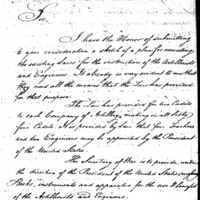 Sir,
I have the Honor of submitting
to your consideration a Sketch of a plan for executing
the existing laws for the instruction of the Artillerists
and Engineers. It already is very evident to me that
they need all the means that the Law has provided
for that purpose.
The Law has provided for two Cadets
to each Company of Artillery, making in all sixty
four Cadets. It is provided by Law that four Teachers
and two Engineers may be appointed by the President
of the United States.
The Secretary of War is to provide, under
the direction of the President of the United States
Books, instruments and apparatus for the use & benefit
of the Artillerists and Engineers.